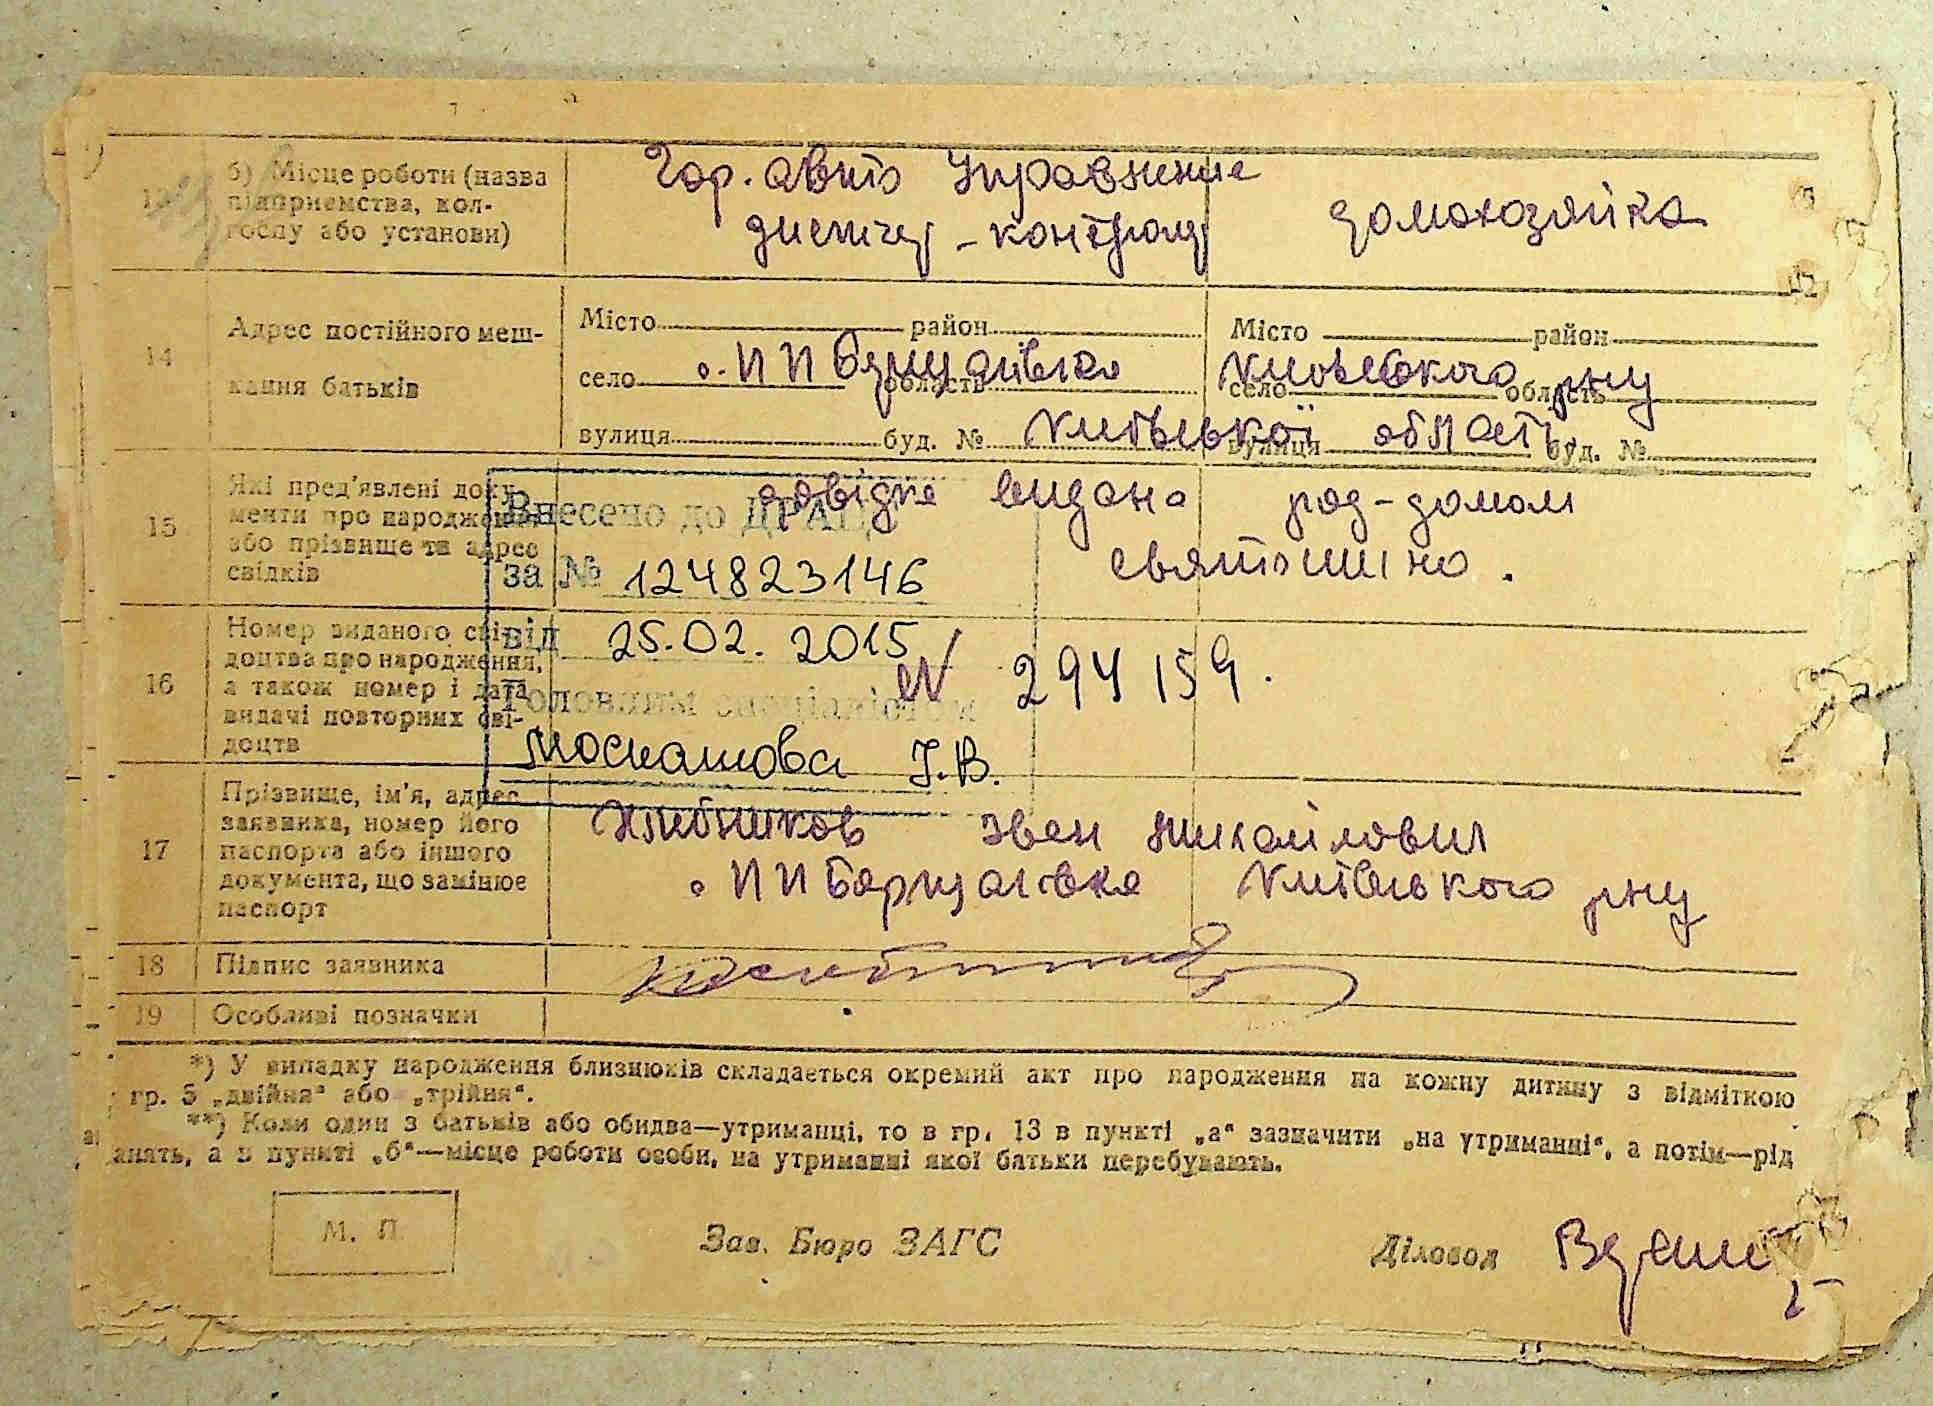 б) Місце роботи (назва підприємства, колгоспу або установи)
Гор. авто Управление
диспетчер - контролер
домохозяйка
14
Адрес постійного мешкання батьків
Місто район
село с. П П Борщаговка область
вулиця буд. №
Місто район
село Киевского р-ну область
Київської область
вулиця буд. №
15
Які пред'явлені документи про народження або прізвище та адрес свідків
довідка видана род-домом
святошино.
Внесено до ДРАЦС
за № 124823146
від 25.02.2015
Головним спеціалістом
Москашова І.В.
16
Номер виданого свідоцтва про народження, а також номер і дата видачі повторних свідоцтв
N 294159.
17
Прізвище, ім'я, адрес заявника, номер його паспорта або іншого документа, що замінює паспорт
Михайлович
с. П П Борщаговка Київського р-ну
18
Підпис заявника
19
Особливі позначки
*) У випадку народження близнюків складається окремий акт про народження на кожну дитину з відміткою
гр. 5 „двійня“ або „трійня“.
**) Коли один з батьків або обидва—утриманці, то в гр. 13 в пункті „а“ зазначити „на утриманні“, а потім—рід
занять, а в пункті „б“—місце роботи особи, на утриманні якої батьки перебувають.
М. П.
Зав. Бюро ЗАГС
Діловод